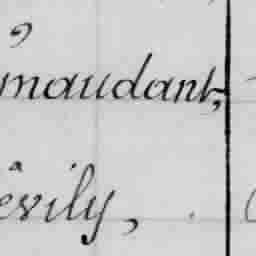 maudant,
evily,